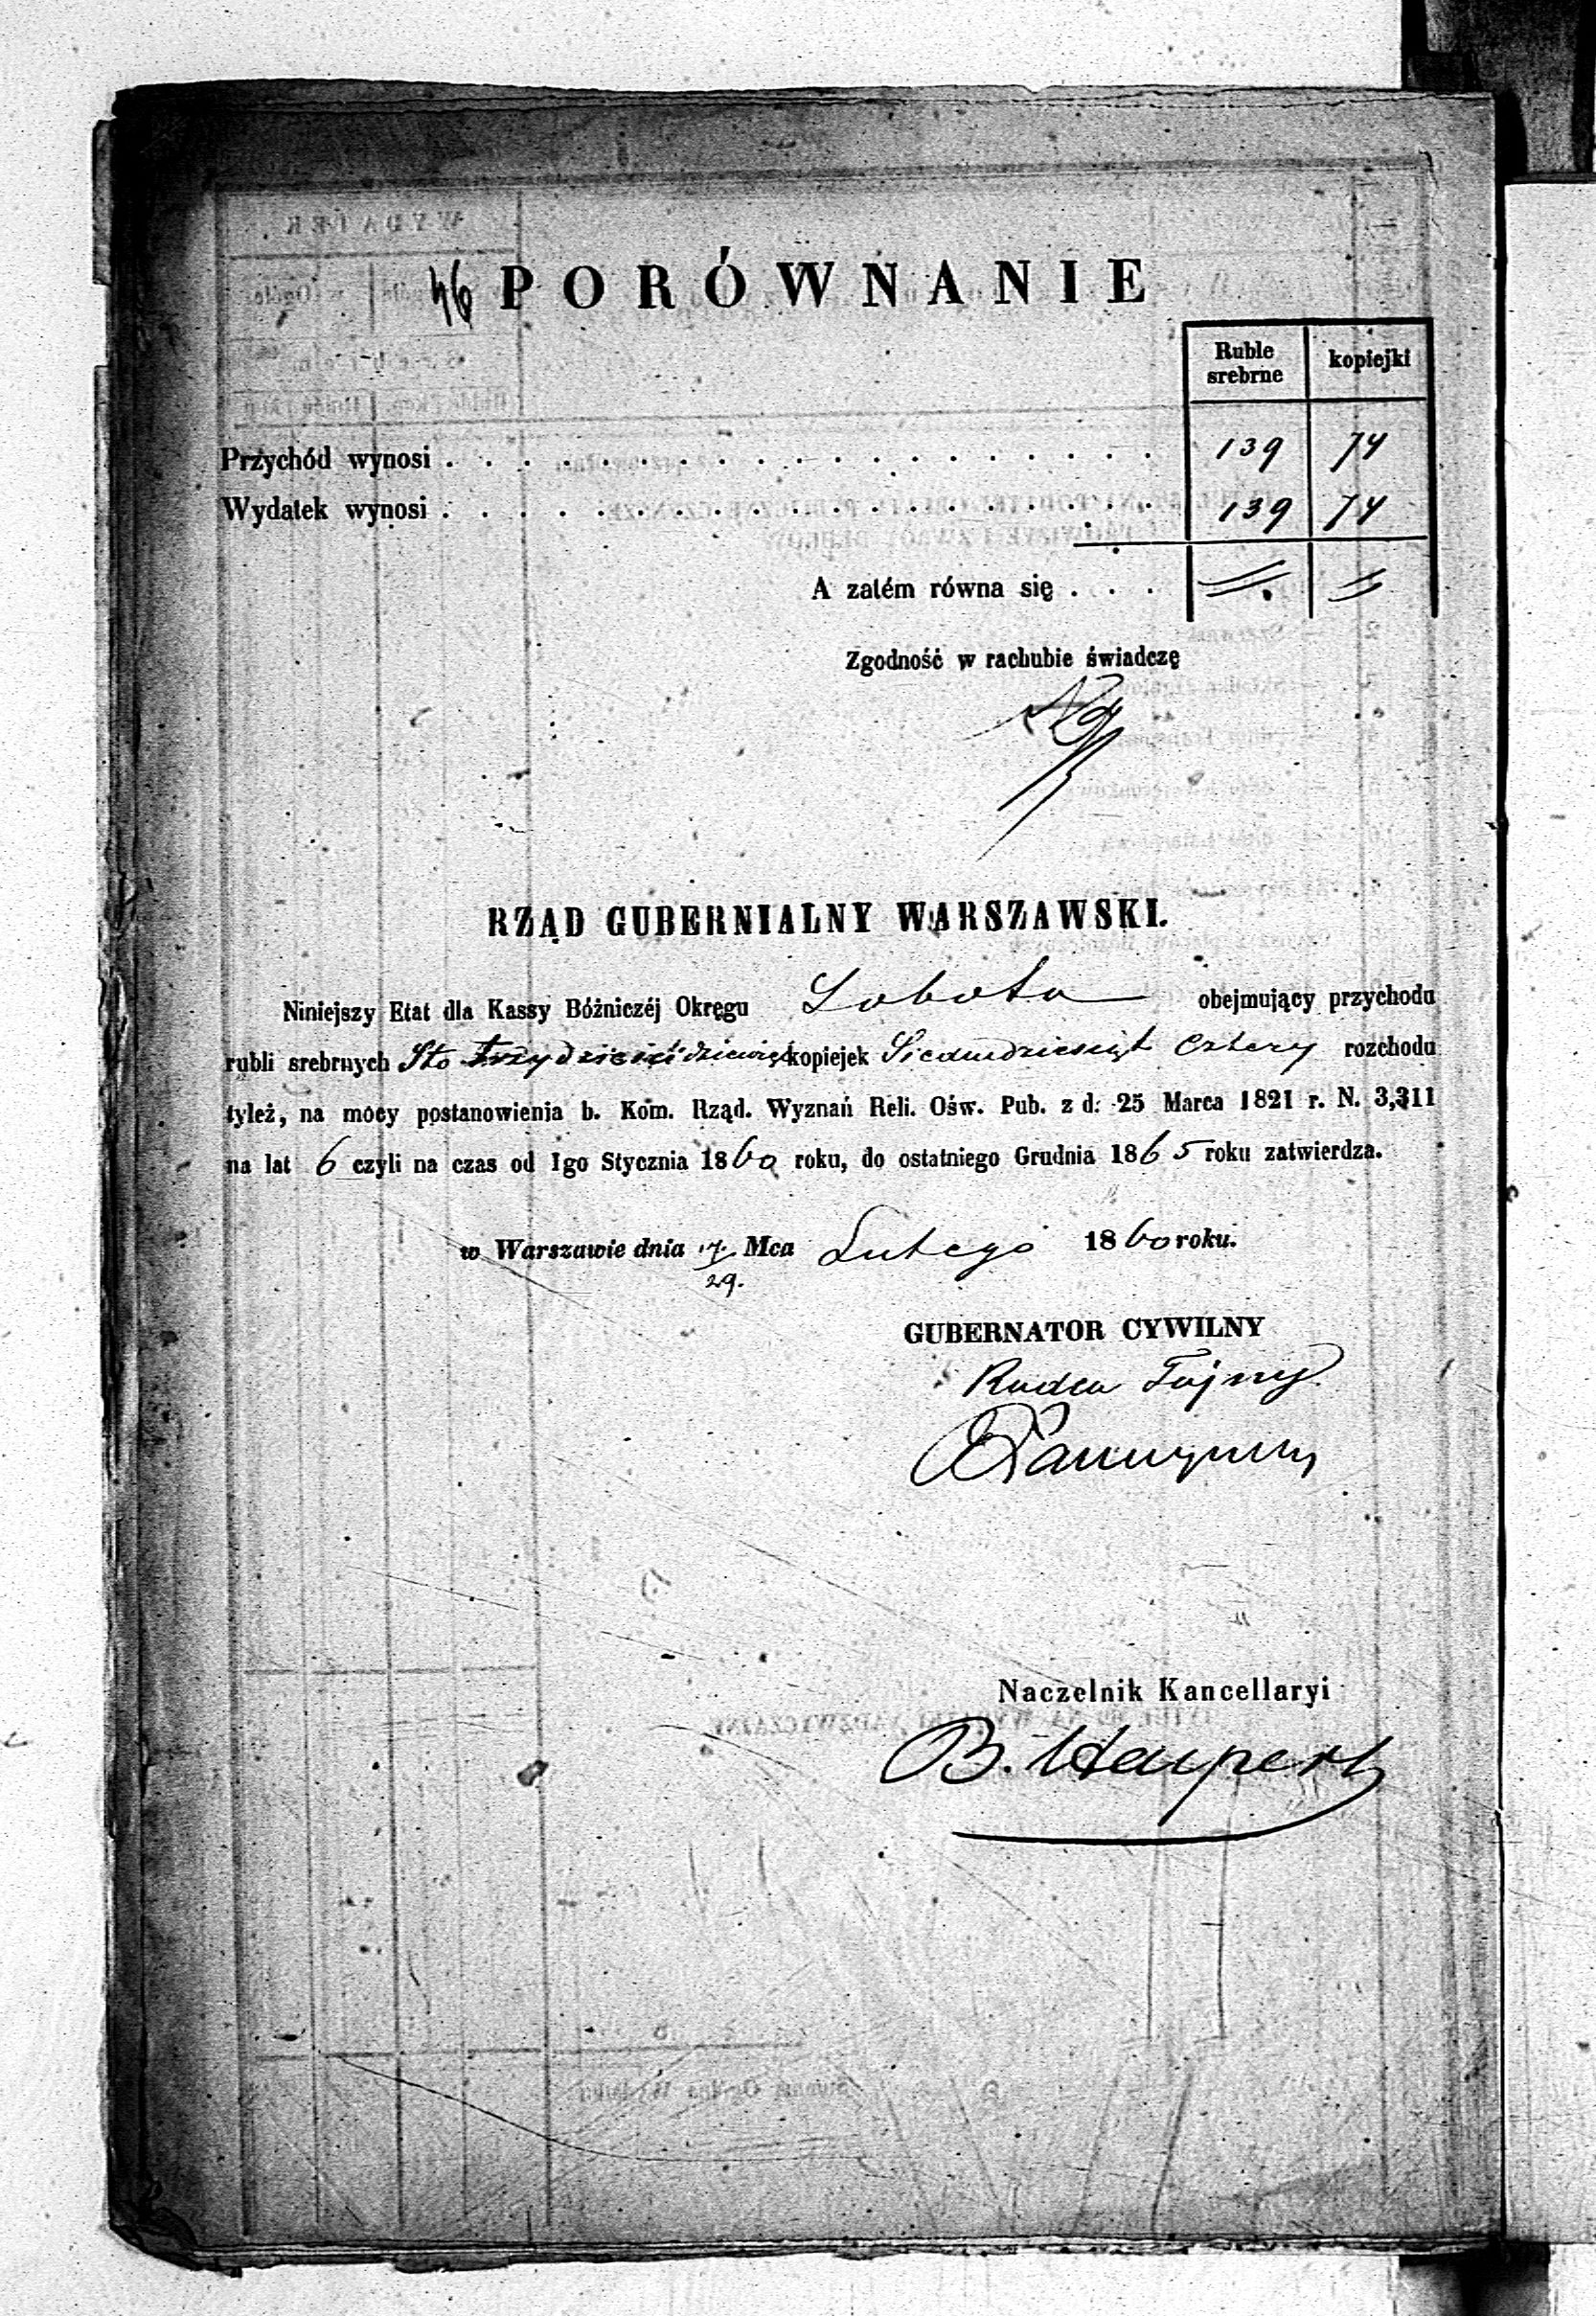 46 PORÓWNANIE
Ruble srebrne kopiejki
Przychód wynosi . . . . . . . . . . . . . . . . . . . 139 74
Wydatek wynosi . . . . . . . . . . . . . . . . . . . 139 74
A zatém równa się . . . = =
Zgodność w rachubie świadczę
RZĄD GUBERNIALNY WARSZAWSKI.
Niniejszy Etat dla Kassy Bóżniczéj Okręgu Sobota obejmujący przychodu
rubli srebrnych Sto trzydzieści dziewięć kopiejek Siedmdziesiąt cztery rozchodu
tyleż, na mocy postanowienia b. Kom. Rząd. Wyznań Reli. Ośw. Pub. z d. 25 Marca 1821 r. N. 3,311
na lat 6 czyli na czas od 1go Stycznia 1860 roku, do ostatniego Grudnia 1865 roku zatwierdza.
w Warszawie dnia 17/29. Mca Lutego 1860 roku.
GUBERNATOR CYWILNY
Radca Tajny
Naczelnik Kancellaryi
B. Halpert